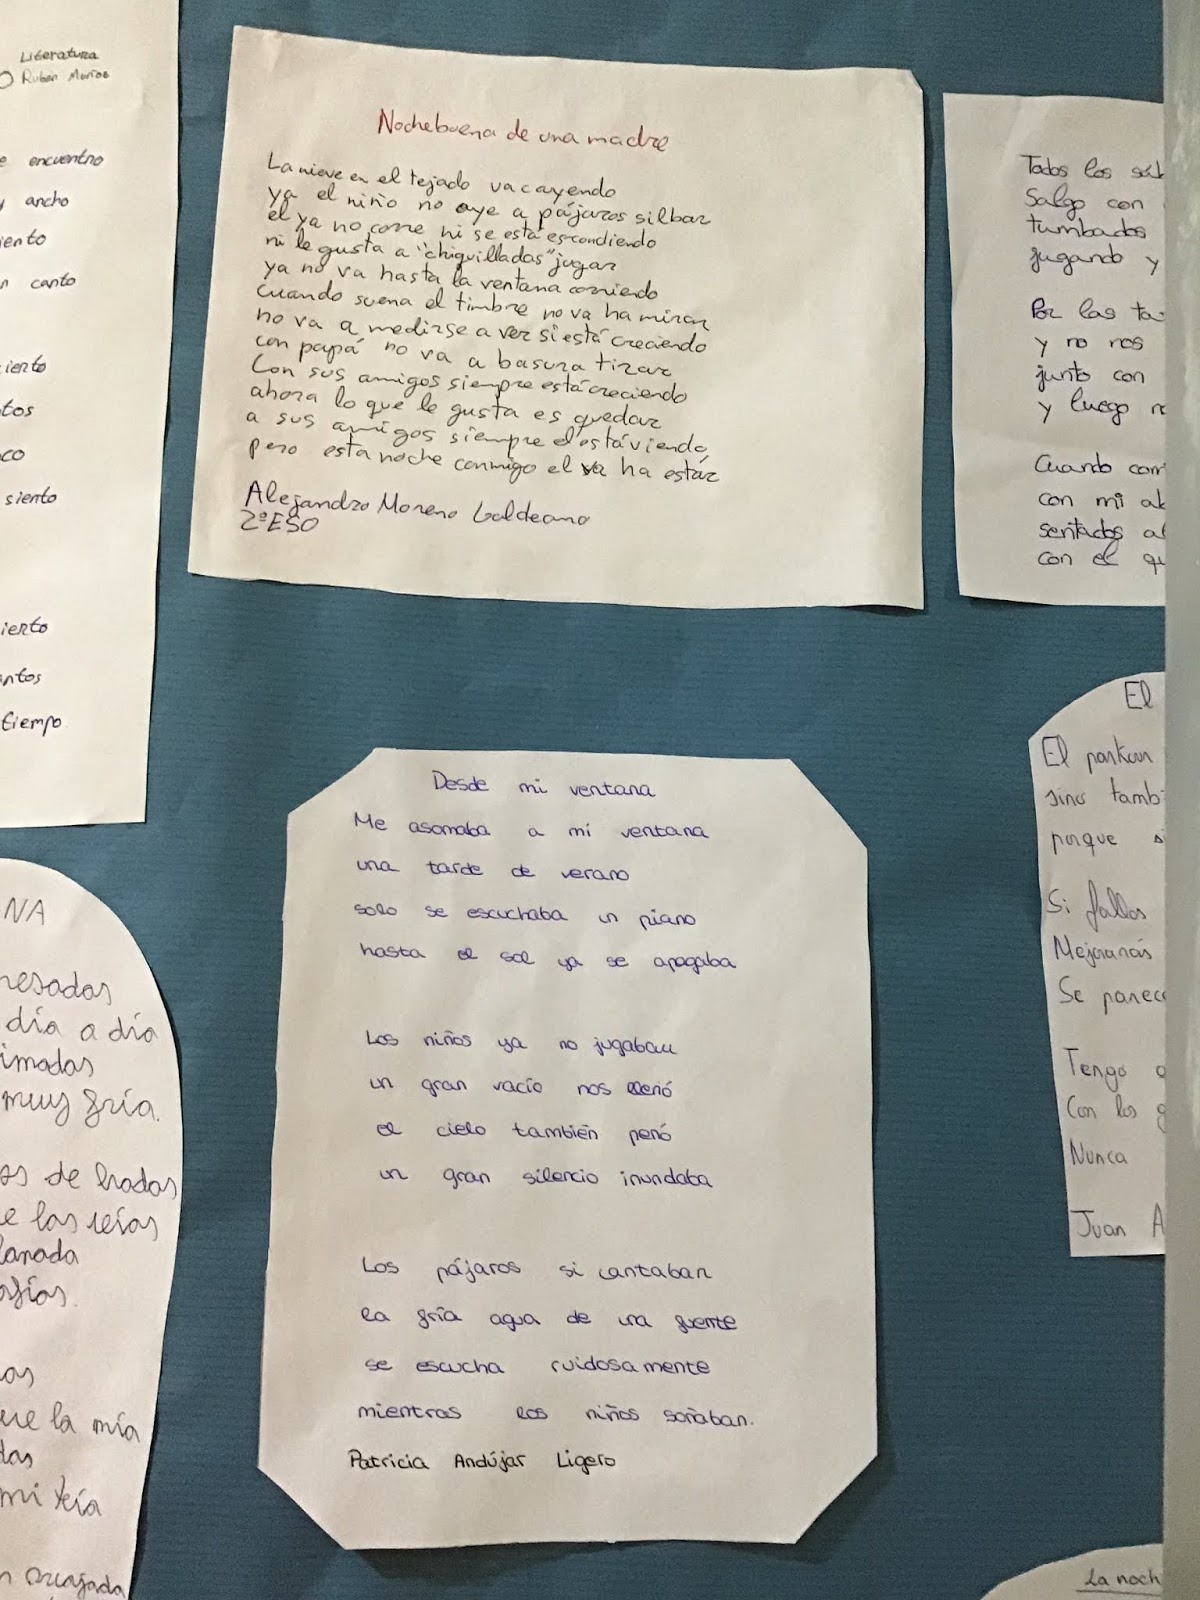 Literatura
Ruben Muñoz
encuentro
y ancho
iento
canto
iento
tos
co
siento
iento
antos
tiempo
Nochebuena de una madre
La nieve en el tejado va cayendo
ya el niño no oye a pájaros silbar
el ya no corre ni se está escondiendo
ni le gusta a "chiquilladas" jugar
ya no va hasta la ventana corriendo
cuando suena el timbre no va ha mirar
no va a medirse a ver si está creciendo
con papá no va a basura tirar
Con sus amigos siempre está creciendo
ahora lo que le gusta es quedar
a sus amigos siempre el está viendo,
pero esta noche conmigo el va ha estár
Alejandro Moreno Galdeano
2ºESO
Todos los sáb
Salgo con
tumbados
jugando y
Por las ta
y no nos
junto con
y luego
Cuando com
con mi ab
sentados al
con el qu
NA
resadas
día a día
imadas
muy fría.
as de hadas
e las reías
lanada
ofías.
as
ue la mía
das
mi tía
Desde mi ventana
Me asomaba a mi ventana
una tarde de verano
solo se escuchaba un piano
hasta el sol ya se apagaba
Los niños ya no jugaban
un gran vacío nos llenó
el cielo también penó
un gran silencio inundaba
Los pájaros si cantaban
la fría agua de una fuente
se escucha ruidosamente
mientras los niños soñaban.
Patricia Andújar Ligero
El
El parkour
sino tamb
porque si
Si fallas
Mejorarás
Se parec
Tengo
Con los g
Nunca
Juan A
La noch